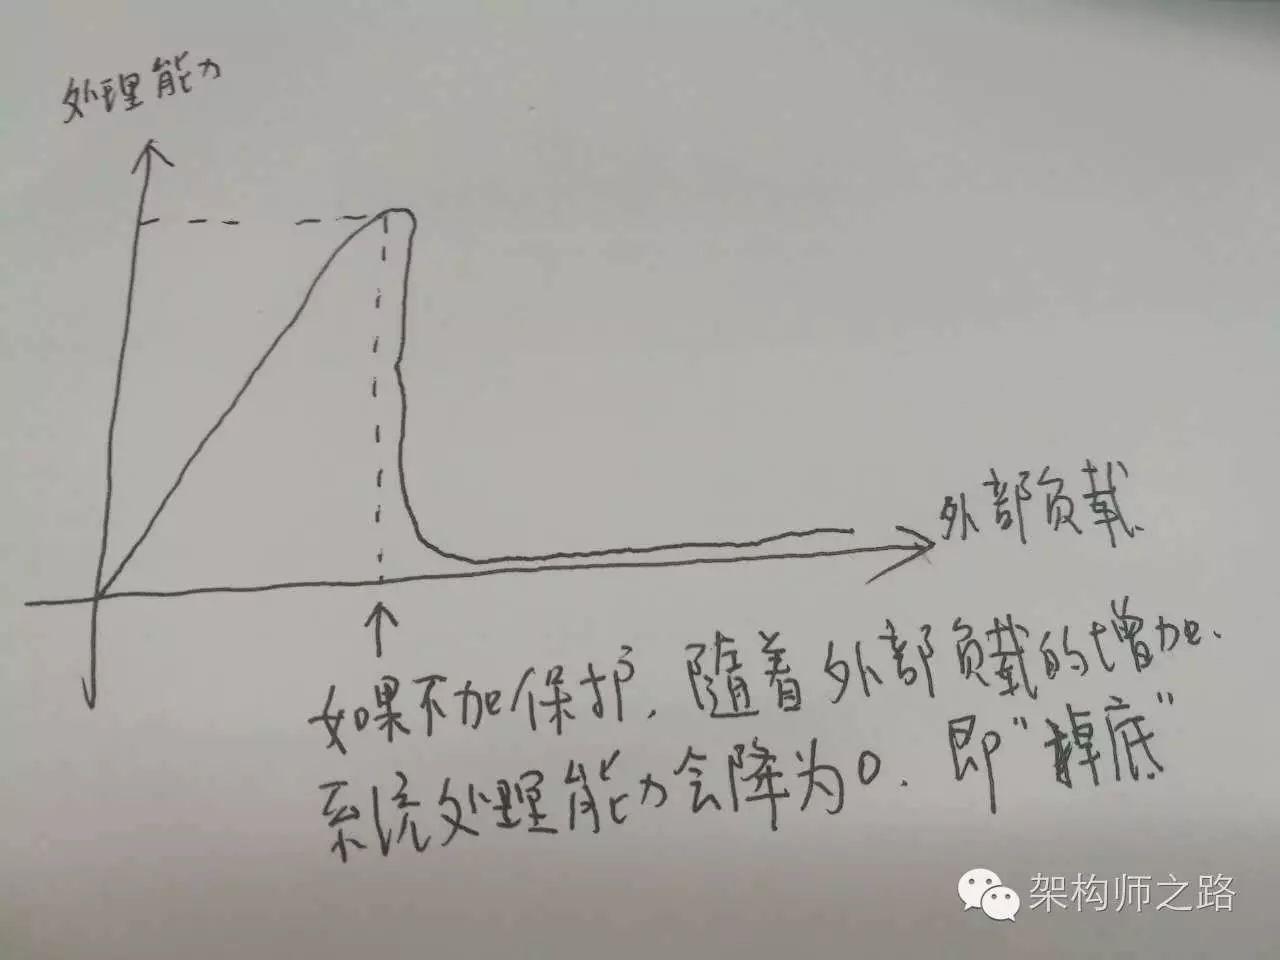 处理能力
外部负载
如果不加保护，随着外部负载的增加，
系统处理能力会降为0，即“掉底”
架构师之路